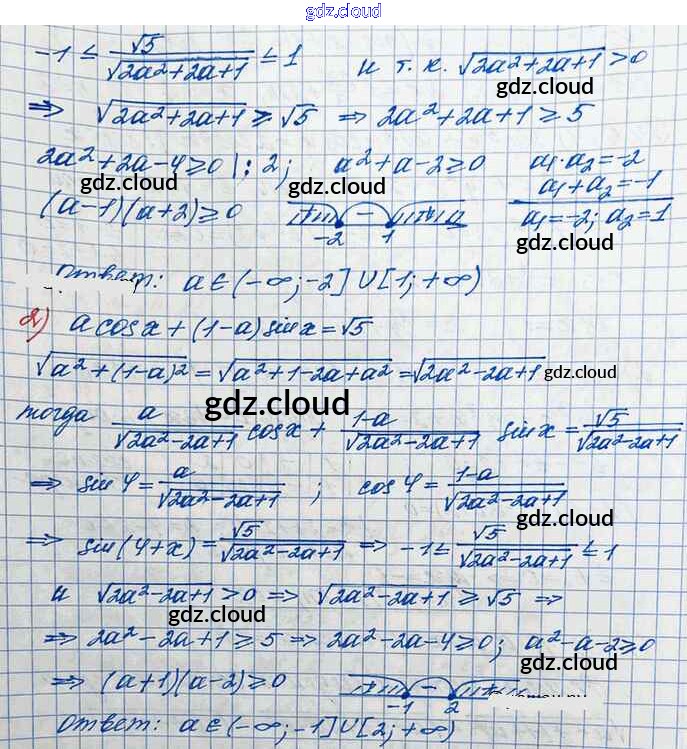 gdz.cloud
-1 ≤ √5/√(2a²+2a+1) ≤ 1 и т. к. √(2a²+2a+1) > 0
gdz.cloud gdz.cloud
⇒ √(2a²+2a+1) ≥ √5 ⇒ 2a²+2a+1 ≥ 5
2a²+2a-4 ≥ 0 |: 2; a²+a-2 ≥ 0 a₁·a₂ = -2
gdz.cloud gdz.cloud a₁+a₂ = -1
(a-1)(a+2) ≥ 0 + -2 - 1 + a₁ = -2; a₂ = 1
gdz.cloud gdz.cloud
Ответ: a ∈ (-∞; -2] ∪ [1; +∞)
2) a cos x + (1-a) sin x = √5
√(a²+(1-a)²) = √(a²+1-2a+a²) = √(2a²-2a+1) gdz.cloud
gdz.cloud
тогда a/√(2a²-2a+1) cos x + (1-a)/√(2a²-2a+1) sin x = √5/√(2a²-2a+1)
gdz.cloud
⇒ sin φ = a/√(2a²-2a+1); cos φ = (1-a)/√(2a²-2a+1)
gdz.cloud
⇒ sin(φ+x) = √5/√(2a²-2a+1) ⇒ -1 ≤ √5/√(2a²-2a+1) ≤ 1
и √(2a²-2a+1) > 0 ⇒ √(2a²-2a+1) ≥ √5 ⇒
gdz.cloud
⇒ 2a²-2a+1 ≥ 5 ⇒ 2a²-2a-4 ≥ 0; a²-a-2 ≥ 0
gdz.cloud
⇒ (a+1)(a-2) ≥ 0 + -1 - 2 +
gdz.cloud
Ответ: a ∈ (-∞; -1] ∪ [2; +∞)